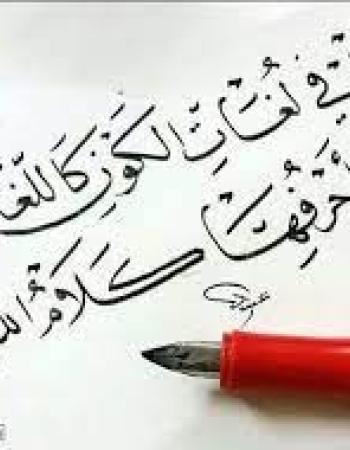 في لُغَاتِ الكَوْنِ كَاللُّغَـ
أَحْرُفُهَا كَلَامُ اللـ